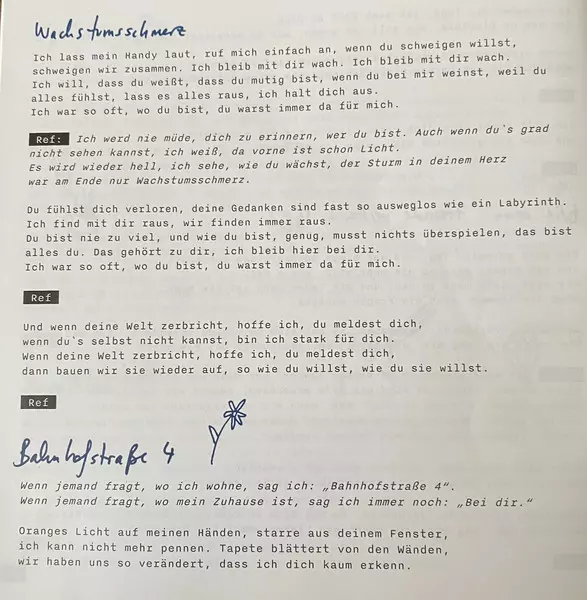 Wachstumsschmerz
Ich lass mein Handy laut, ruf mich einfach an, wenn du schweigen willst,
schweigen wir zusammen. Ich bleib mit dir wach. Ich bleib mit dir wach.
Ich will, dass du weißt, dass du mutig bist, wenn du bei mir weinst, weil du
alles fühlst, lass es alles raus, ich halt dich aus.
Ich war so oft, wo du bist, du warst immer da für mich.
Ref: Ich werd nie müde, dich zu erinnern, wer du bist. Auch wenn du`s grad
nicht sehen kannst, ich weiß, da vorne ist schon Licht.
Es wird wieder hell, ich sehe, wie du wächst, der Sturm in deinem Herz
war am Ende nur Wachstumsschmerz.
Du fühlst dich verloren, deine Gedanken sind fast so ausweglos wie ein Labyrinth.
Ich find mit dir raus, wir finden immer raus.
Du bist nie zu viel, und wie du bist, genug, musst nichts überspielen, das bist
alles du. Das gehört zu dir, ich bleib hier bei dir.
Ich war so oft, wo du bist, du warst immer da für mich.
Ref
Und wenn deine Welt zerbricht, hoffe ich, du meldest dich,
wenn du`s selbst nicht kannst, bin ich stark für dich.
Wenn deine Welt zerbricht, hoffe ich, du meldest dich,
dann bauen wir sie wieder auf, so wie du willst, wie du sie willst.
Ref
Bahnhofstraße 4
Wenn jemand fragt, wo ich wohne, sag ich: „Bahnhofstraße 4“.
Wenn jemand fragt, wo mein Zuhause ist, sag ich immer noch: „Bei dir.“
Oranges Licht auf meinen Händen, starre aus deinem Fenster,
ich kann nicht mehr pennen. Tapete blättert von den Wänden,
wir haben uns so verändert, dass ich dich kaum erkenn.